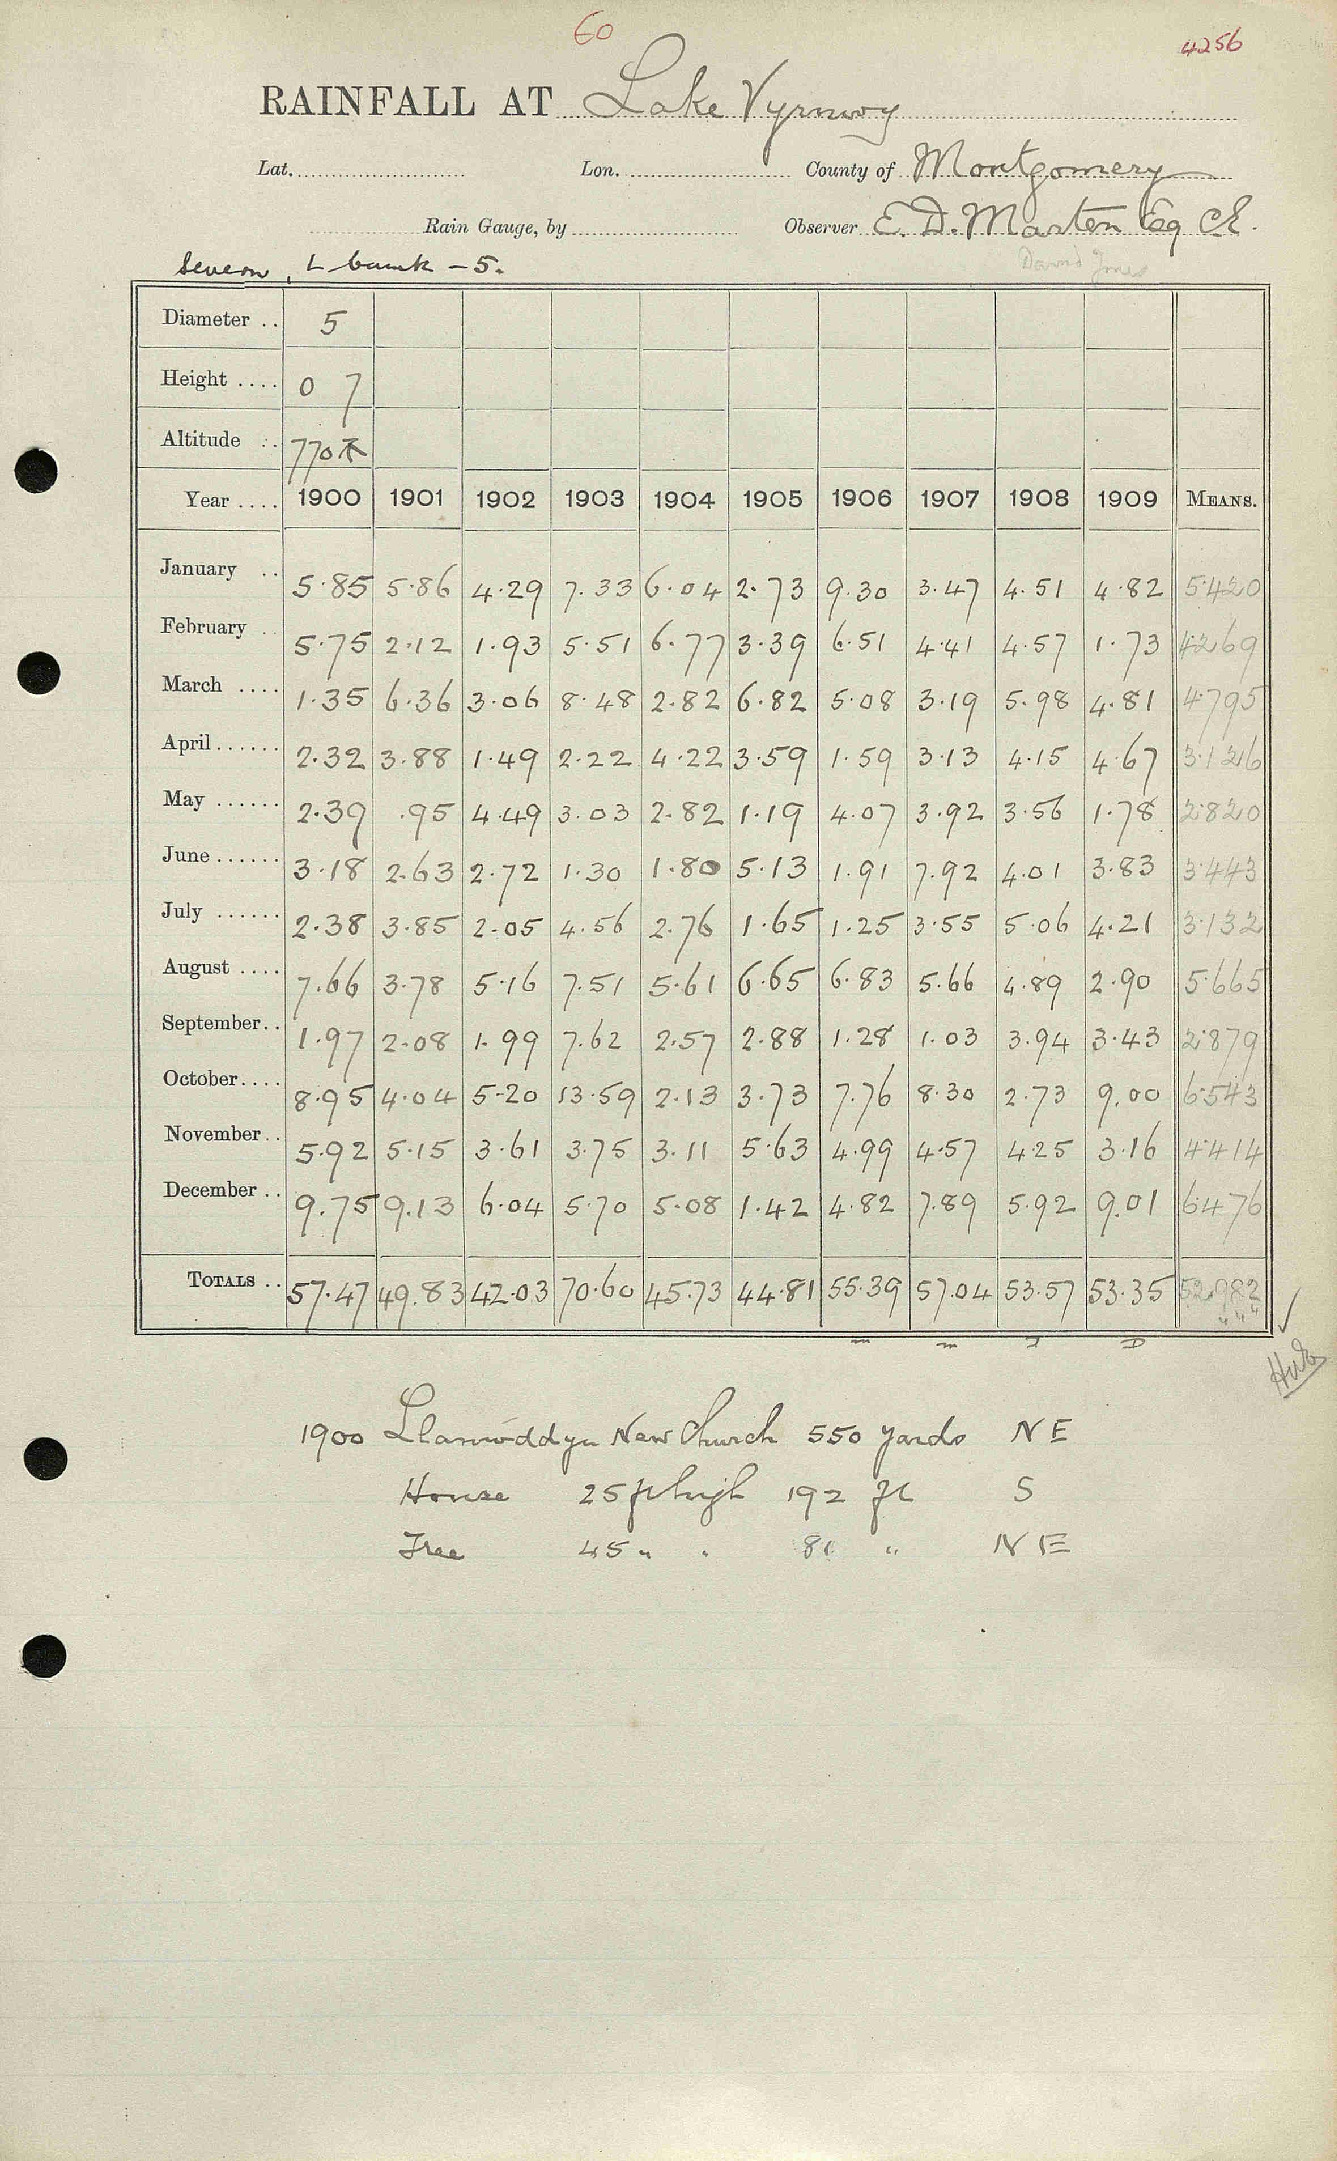 60
4256
RAINFALL AT Lake Vyrnwy
Lat. Lon. County of Montgomery
Rain Gauge, by Observer E. D. Marten Esq CE.
David Jones
Severn, L bank - 5.
Diameter .. 5
Height .... 0 7
Altitude .. 770
Year .... 1900 1901 1902 1903 1904 1905 1906 1907 1908 1909 MEANS.
January .. 5.85 5.86 4.29 7.33 6.04 2.73 9.30 3.47 4.51 4.82 5.420
February .. 5.75 2.12 1.93 5.51 6.77 3.39 6.51 4.41 4.57 1.73 4.269
March .... 1.35 6.36 3.06 8.48 2.82 6.82 5.08 3.19 5.98 4.81 4.795
April...... 2.32 3.88 1.49 2.22 4.22 3.59 1.59 3.13 4.15 4.67 3.126
May ...... 2.39 .95 4.49 3.03 2.82 1.19 4.07 3.92 3.56 1.78 2.820
June...... 3.18 2.63 2.72 1.30 1.80 5.13 1.91 7.92 4.01 3.83 3.443
July ...... 2.38 3.85 2.05 4.56 2.76 1.65 1.25 3.55 5.06 4.21 3.132
August .... 7.66 3.78 5.16 7.51 5.61 6.65 6.83 5.66 4.89 2.90 5.665
September.. 1.97 2.08 1.99 7.62 2.57 2.88 1.28 1.03 3.94 3.43 2.879
October.... 8.95 4.04 5.20 13.59 2.13 3.73 7.76 8.30 2.73 9.00 6.543
November.. 5.92 5.15 3.61 3.75 3.11 5.63 4.99 4.57 4.25 3.16 4.414
December .. 9.75 9.13 6.04 5.70 5.08 1.42 4.82 7.89 5.92 9.01 6.476
TOTALS .. 57.47 49.83 42.03 70.60 45.73 44.81 55.39 57.04 53.57 53.35 52.982
1900 Llanwddyn New Church 550 yards NE
House 25 ft high 192 ft S
Tree 45 " " " NE